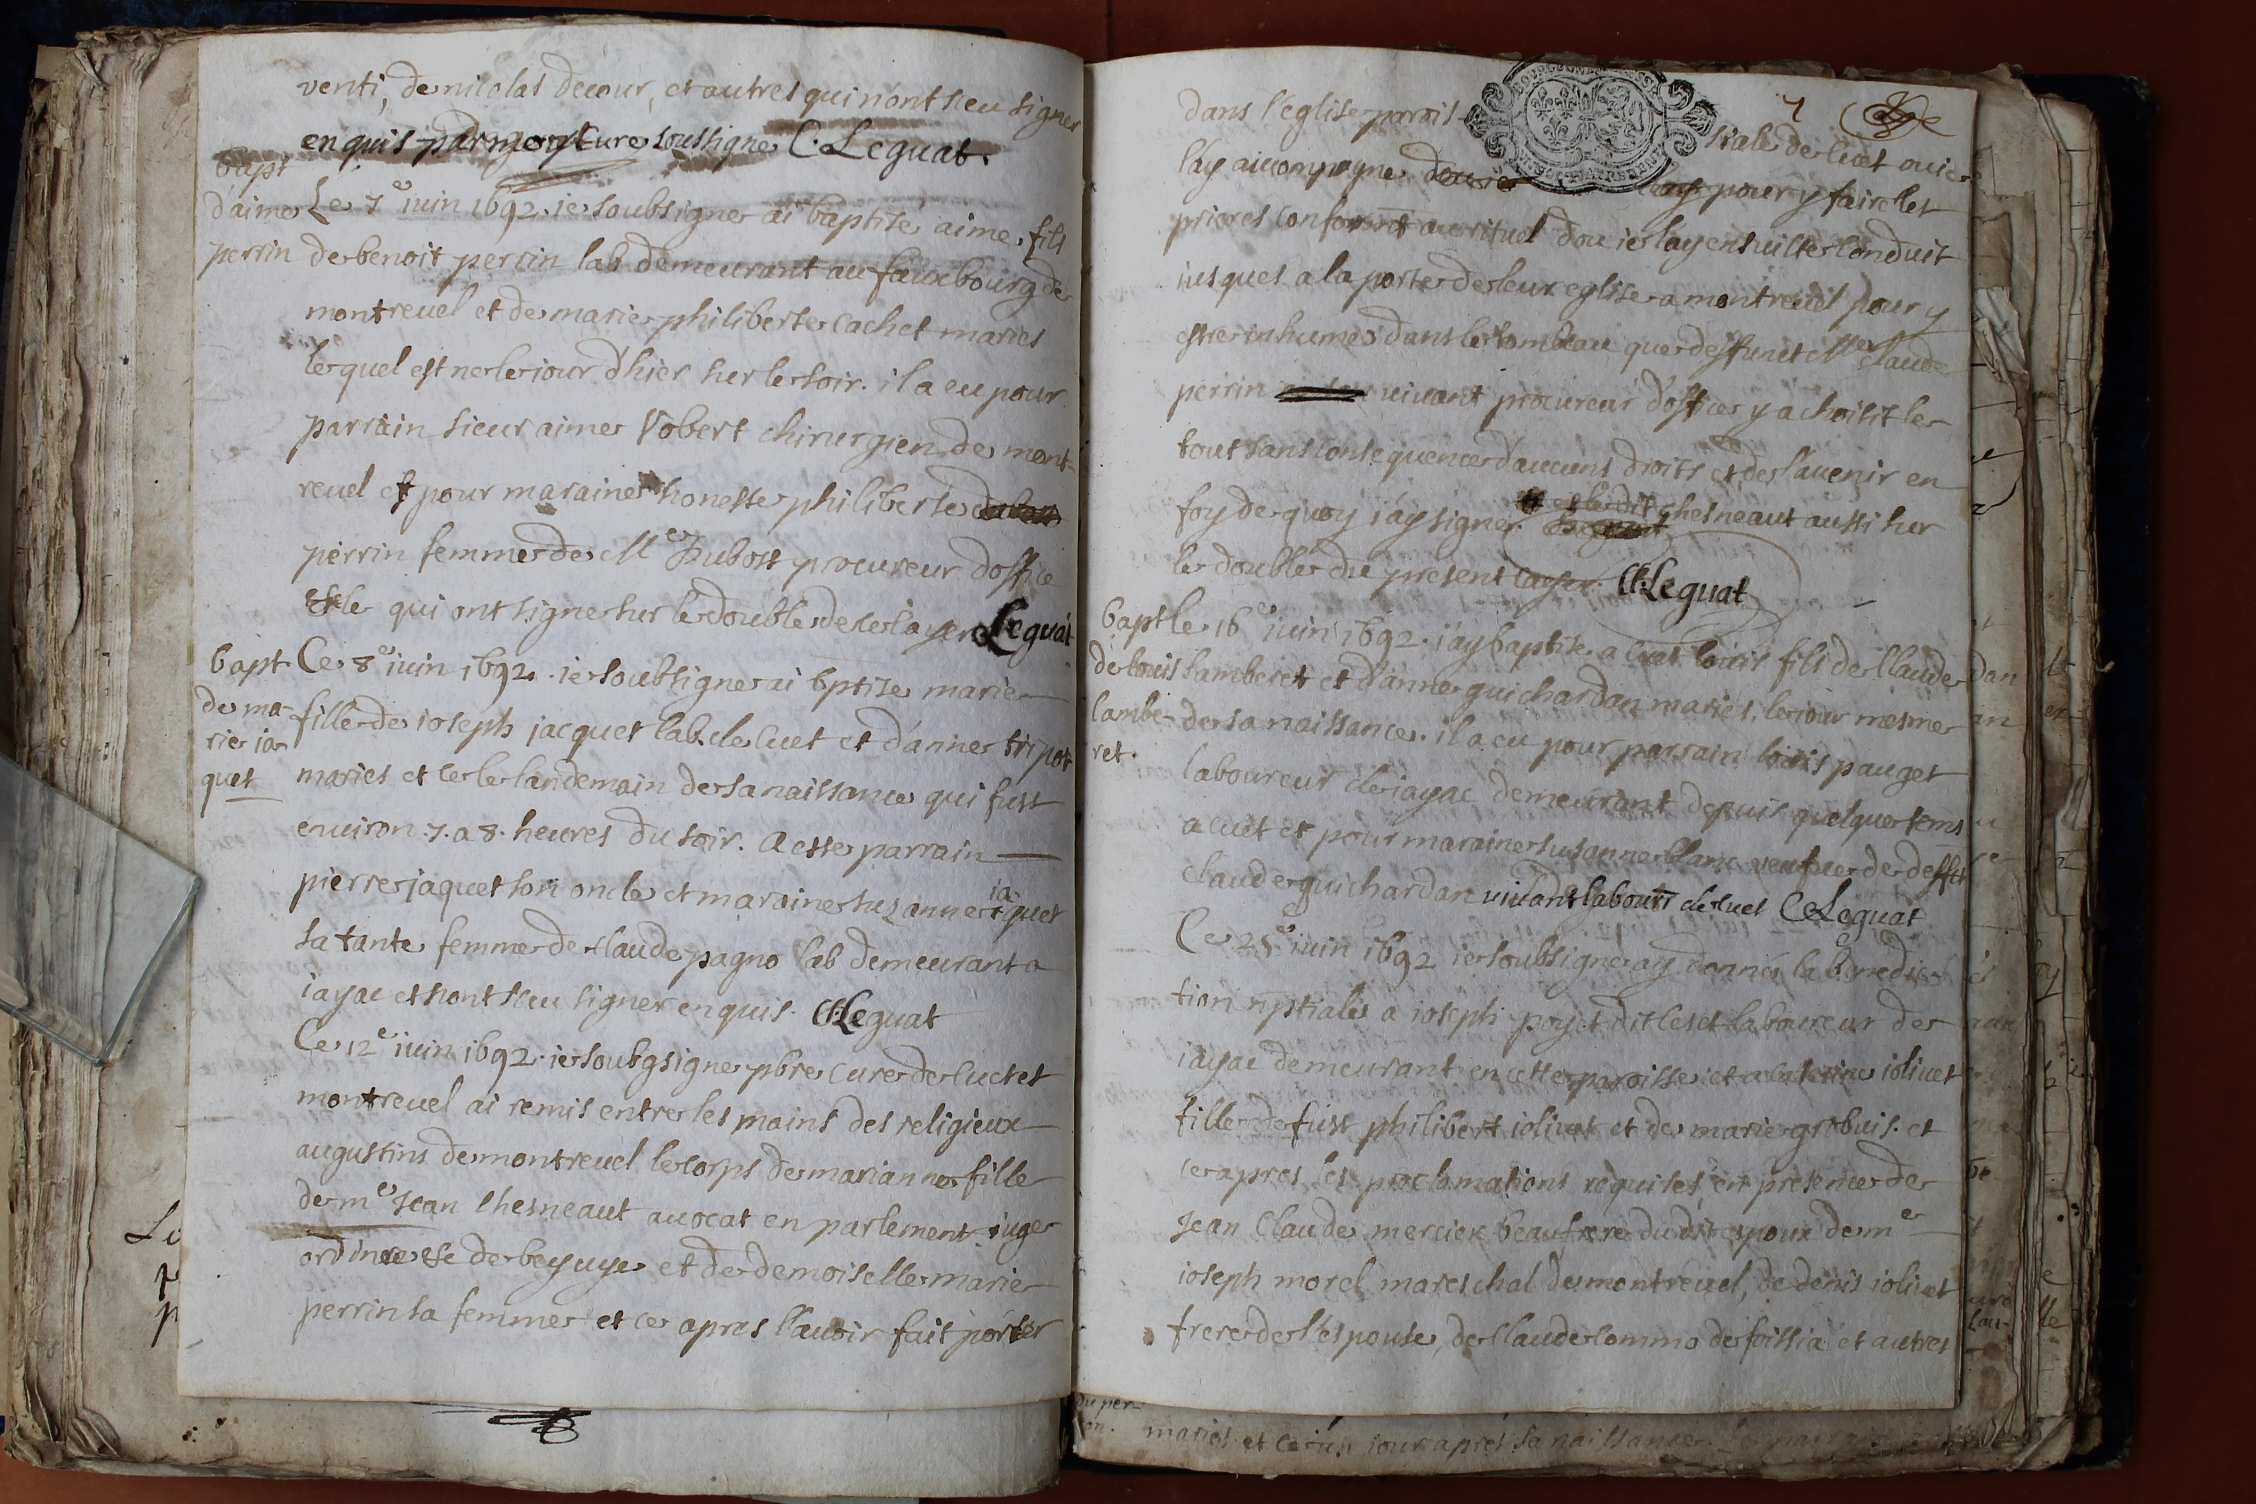 venti, de nicolas decour, et autres qui n'ont sceu signer
enquis par moy Curé soussigné C. Leguat.
bapt
d'aimé
perrin
Le 7e iuin 1692 ie soubsigné ai baptisé aimé fils
de benoit perrin lab demeurant au fauxbourg de
montrevel et de marie philiberte cachet mariés
lequel est né le jour d'hier sur le soir. il a eu pour
parrain sieur aimé Vobert chirurgien de mont-
revel et pour maraine honeste philiberte
perrin femme de Me Dubost procureur d'office
qui ont signé sur le double de ce cayer Leguat
bapt
de ma-
rie ia-
quet
Ce 8e iuin 1692. ie soubsigné ai bptisé marie
fille de ioseph jacquet lab. de Cuet et d'anne tripot
mariés et ce le landemain de sa naissance qui fust
environ 7. a 8. heures du soir. a esté parrain
pierre jaquet son oncle et maraine suzanne iaquet
sa tante femme de claude pagno lab demeurant a
iayac et n'ont sceu signer enquis. C. Leguat
Ce 12e iuin 1692. ie soubgsigné pbre curé de cuet et
montrevel ai remis entre les mains des religieux
augustins de montrevel le corps de marianne fille
de me Jean Chesneaut avocat en parlement iuge
ordinre de beyvye et de demoiselle marie
perrin sa femme et ce apres l'avoir fait porter
7
dans l'eglise parois- siale de cuet ou ie
l'ay accompagné pour y faire les
prieres conformt au rituel d'ou ie l'ay ensuitte conduit
iusques a la porte de leur eglise a montrevel pour y
estre inhumée dans le tombeau que deffunct Me claude
perrin vivant procureur d'office y a choisit le
tout sans consequence d'aucuns droits et de l'avenir en
foy de quoy i'ay signé et ledit chesneaut aussi sur
le double du present cayer. C. Leguat
bapt
de louis
lambe-
ret.
le 16e iuin 1692. i'ay baptisé a cuet louis fils de Claude
lamberet et d'anne guichardan mariés, le iour mesme
de sa naissance. il a eu pour parrain louis pauget
laboureur de iayac demeurant depuis quelque tems
a cuet et pour maraine susanne blanc veufve de deffct
claude guichardan vivant labour de cuet C. Leguat
Ce 25e iuin 1692 ie soubsigné ay donné la benedic-
tion nptiale a ioseph poyet dit leset laboureur de
iayac demeurant en cette paroisse et a caterine iolivet
fille de fust philibert iolivet et de marie grobuis. et
ce apres les proclmations requises en presence de
Jean Claude mercier beaufrere dudit espoux de me
ioseph morel mareschal de montrevel, de denis iolivet
frere de l'espouse, de Claude commo de foissia et autres
mariés et ce un iour apres sa naissance